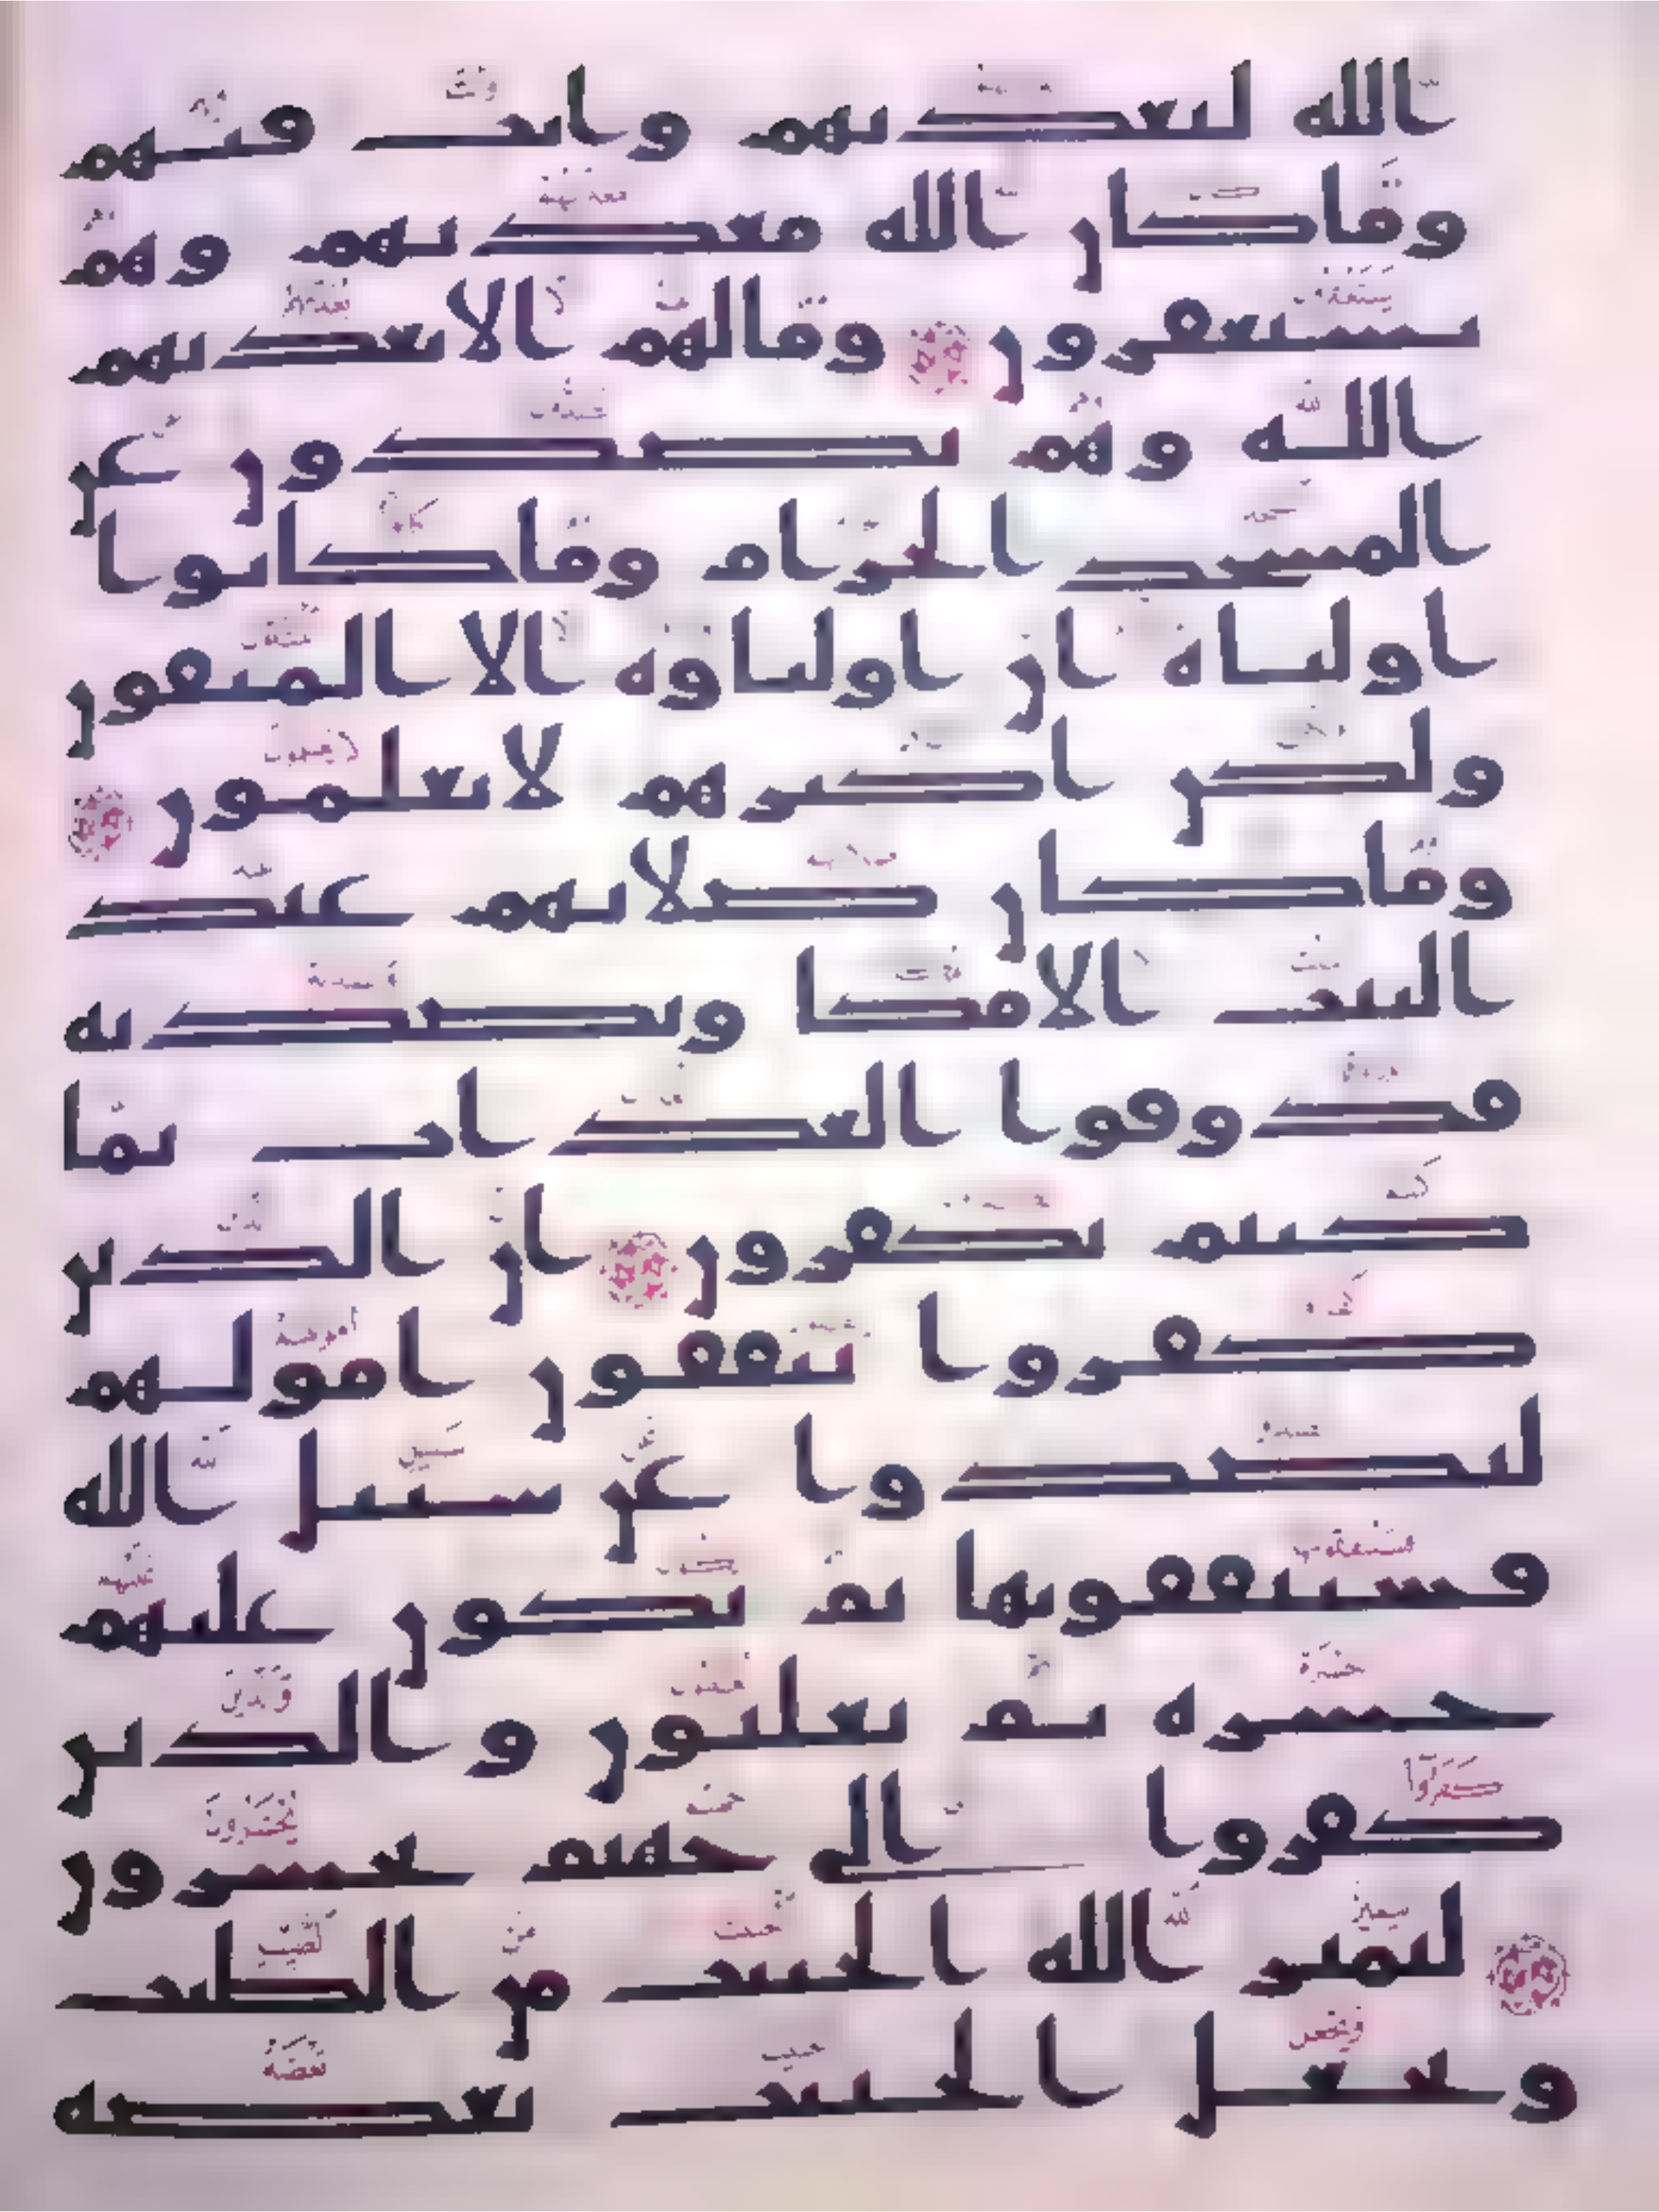 الله ليعذبهم وانت فيهم
وما كان الله معذبهم وهم
يستغفرون وما لهم الا يعذبهم
الله وهم يصدون عن
المسجد الحرام وما كانوا
اولياه ان اولياوه الا المتقون
ولكن اكثرهم لا يعلمون
وما كان صلاتهم عند
البيت الا مكا وتصديه
فذوقوا العذاب بما
كنتم تكفرون ان الذين
كفروا ينفقون امولهم
ليصدوا عن سبيل الله
فسينفقونها ثم تكون عليهم
حسره ثم يغلبون والذين
كفروا الى جهنم يحشرون
ليميز الله الخبيث من الطيب
ويجعل الخبيث بعضه